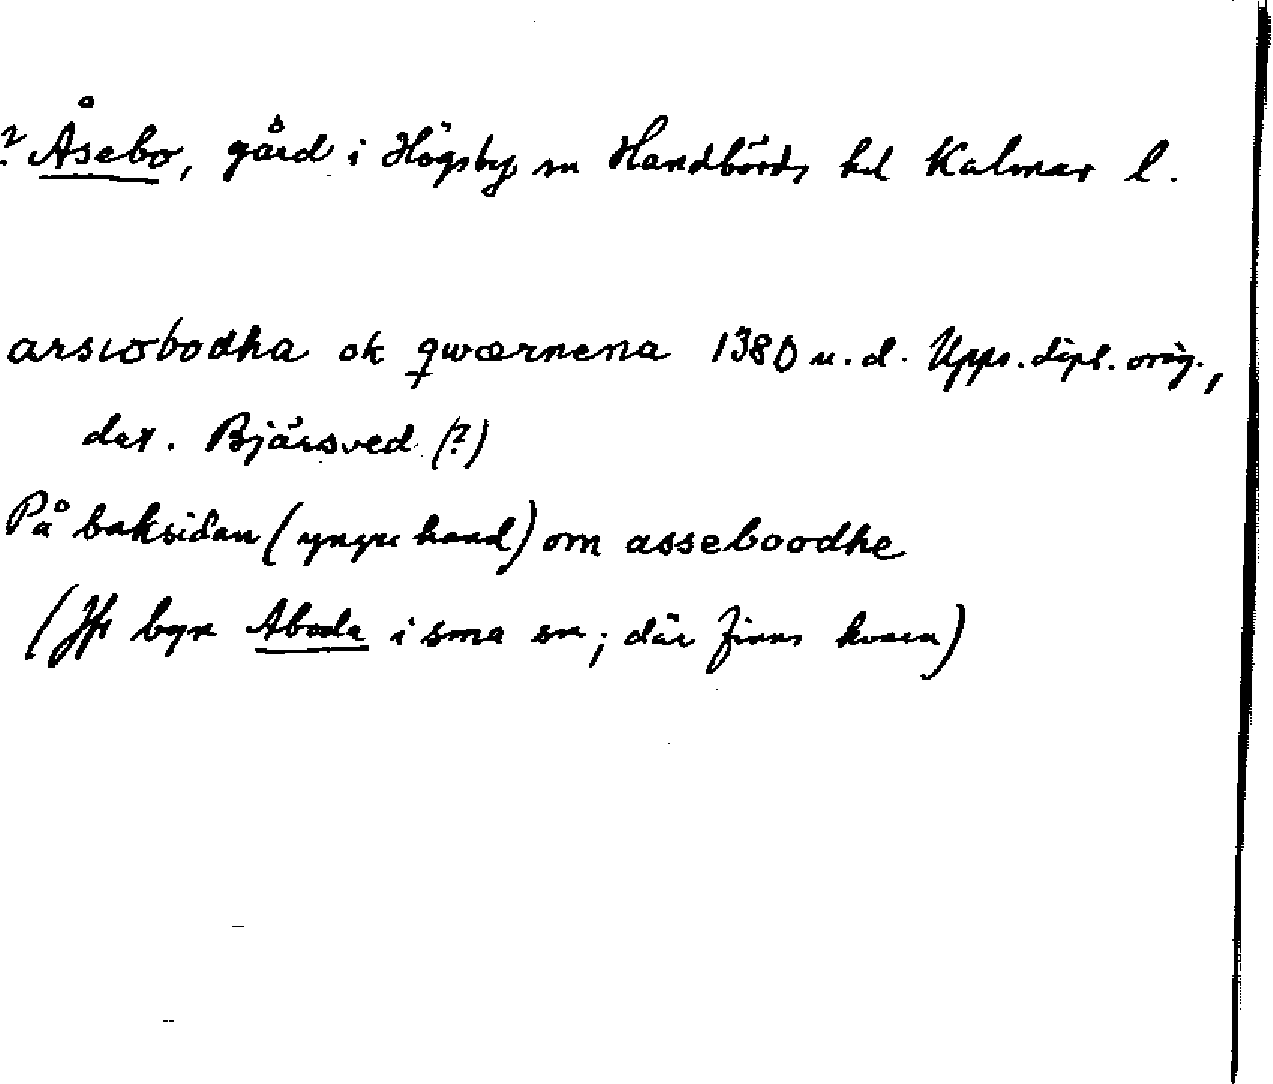 ? Åsebo, gård i Högsby sn Handbörds hd Kalmar l.
arsiobodha ok qwærnena 1380 u. d. Upps. dipl. orig.,
dat. Bjärsved (?)
På baksidan (yngre hand) om asseboodhe
(Jfr byn Aboda i sma sn; där finns kvarn)